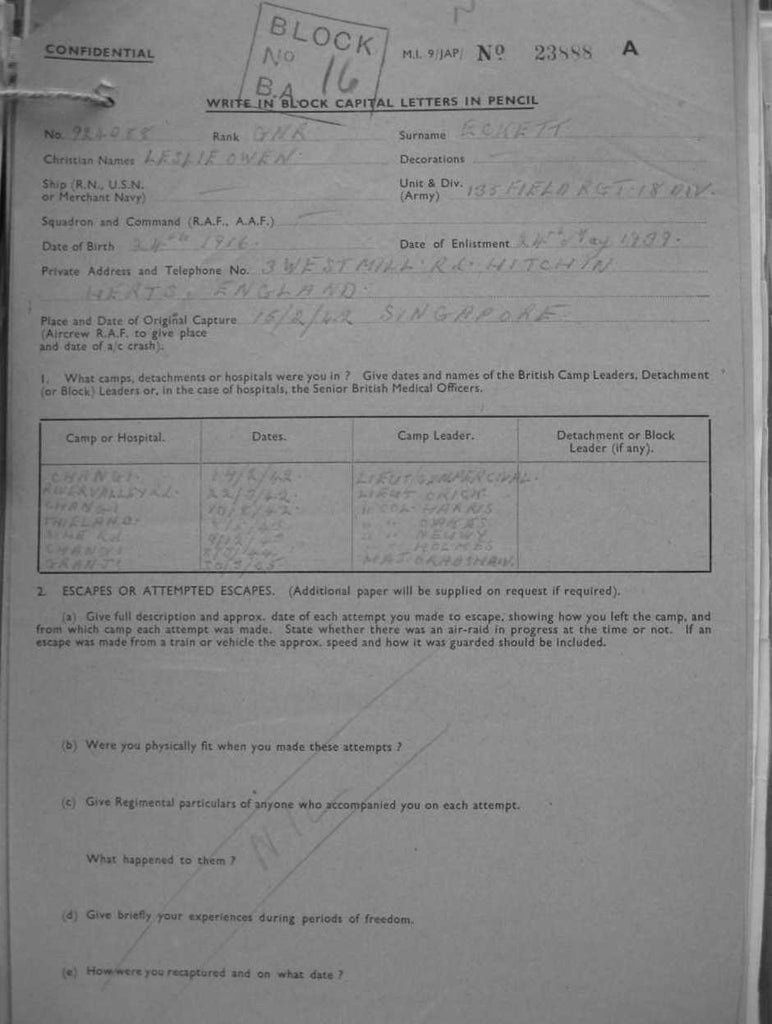 BLOCK
No 16
B.A
CONFIDENTIAL
M.I. 9/JAP/ No 23888 A
WRITE IN BLOCK CAPITAL LETTERS IN PENCIL
No. 924088 Rank GNR Surname ECKETT
Christian Names LESLIE OWEN. Decorations
Ship (R.N., U.S.N. or Merchant Navy) Unit & Div. (Army) 135 FIELD RGT. 18 DIV.
Squadron and Command (R.A.F., A.A.F.)
Date of Birth 24th 1916. Date of Enlistment 24th May 1939.
Private Address and Telephone No. 3 WESTMILL RD. HITCHIN
HERTS, ENGLAND.
Place and Date of Original Capture 15/2/42 SINGAPORE
(Aircrew R.A.F. to give place
and date of a/c crash).
1. What camps, detachments or hospitals were you in ? Give dates and names of the British Camp Leaders, Detachment
(or Block) Leaders or, in the case of hospitals, the Senior British Medical Officers.
Camp or Hospital. Dates. Camp Leader. Detachment or Block
Leader (if any).
CHANGI. LIEUT PERCIVAL.
RIVER VALLEY RD. LIEUT
CHANGI COL. HARRIS
THIELAND. OAKES
RD.
CHANGI HOLMES
MAJ. BRADSHAW.
2. ESCAPES OR ATTEMPTED ESCAPES. (Additional paper will be supplied on request if required).
(a) Give full description and approx. date of each attempt you made to escape, showing how you left the camp, and
from which camp each attempt was made. State whether there was an air-raid in progress at the time or not. If an
escape was made from a train or vehicle the approx. speed and how it was guarded should be included.
(b) Were you physically fit when you made these attempts ?
(c) Give Regimental particulars of anyone who accompanied you on each attempt.
NIL
What happened to them ?
(d) Give briefly your experiences during periods of freedom.
(e) How were you recaptured and on what date ?